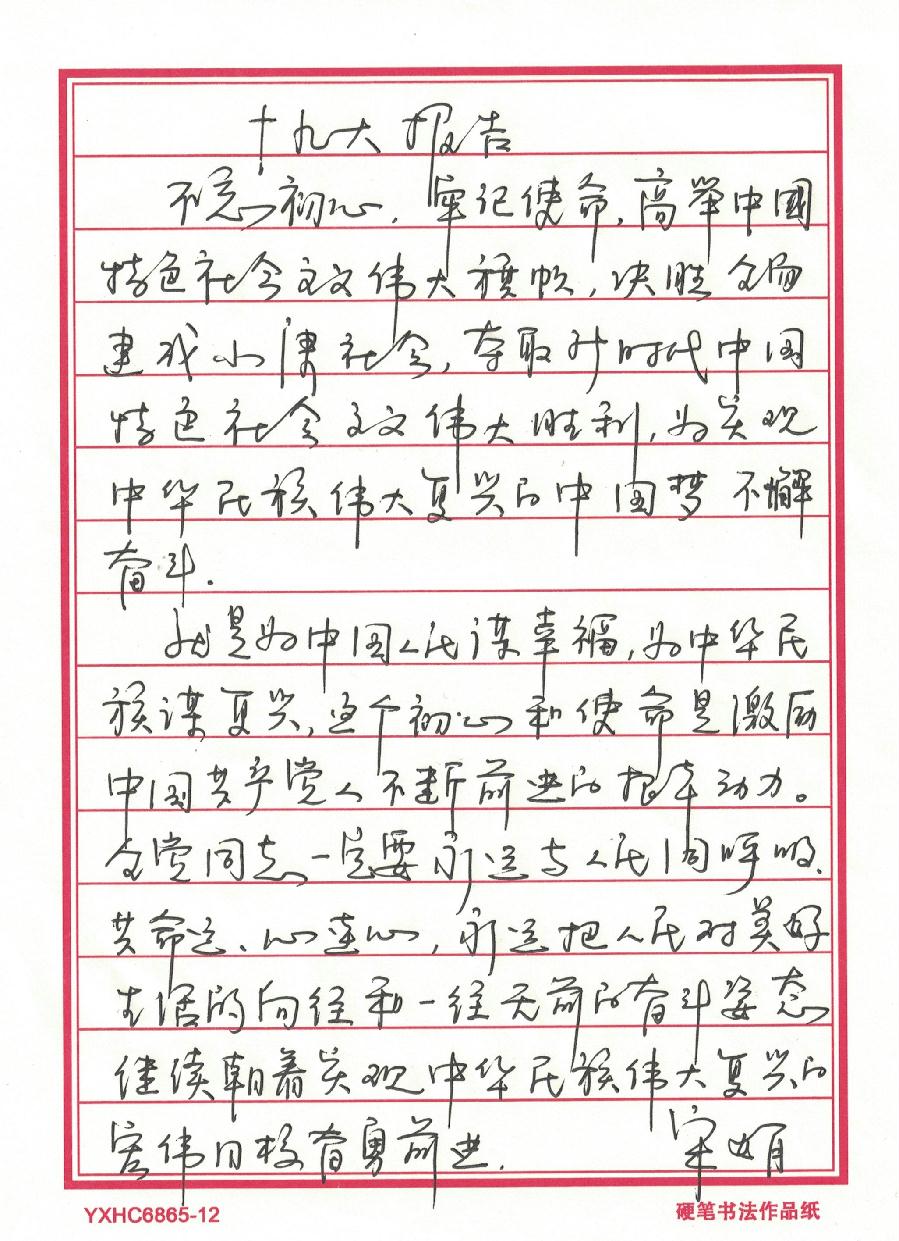 十九大报告
不忘初心,牢记使命,高举中國
特色社会主义伟大旗帜,决胜全面
建成小康社会,夺取新时代中国
特色社会主义伟大胜利,为实现
中华民族伟大复兴的中国梦不懈
奋斗.
就是为中国人民谋幸福,为中华民
族谋复兴,这个初心和使命是激励
中国共产党人不断前进的根本动力。
全党同志一定要永远与人民同呼吸、
共命运、心连心,永远把人民对美好
生活的向往和一往无前的奋斗姿态
继续朝着实现中华民族伟大复兴的
宏伟目标奋勇前进.
宋娟
YXHC6865-12
硬笔书法作品纸